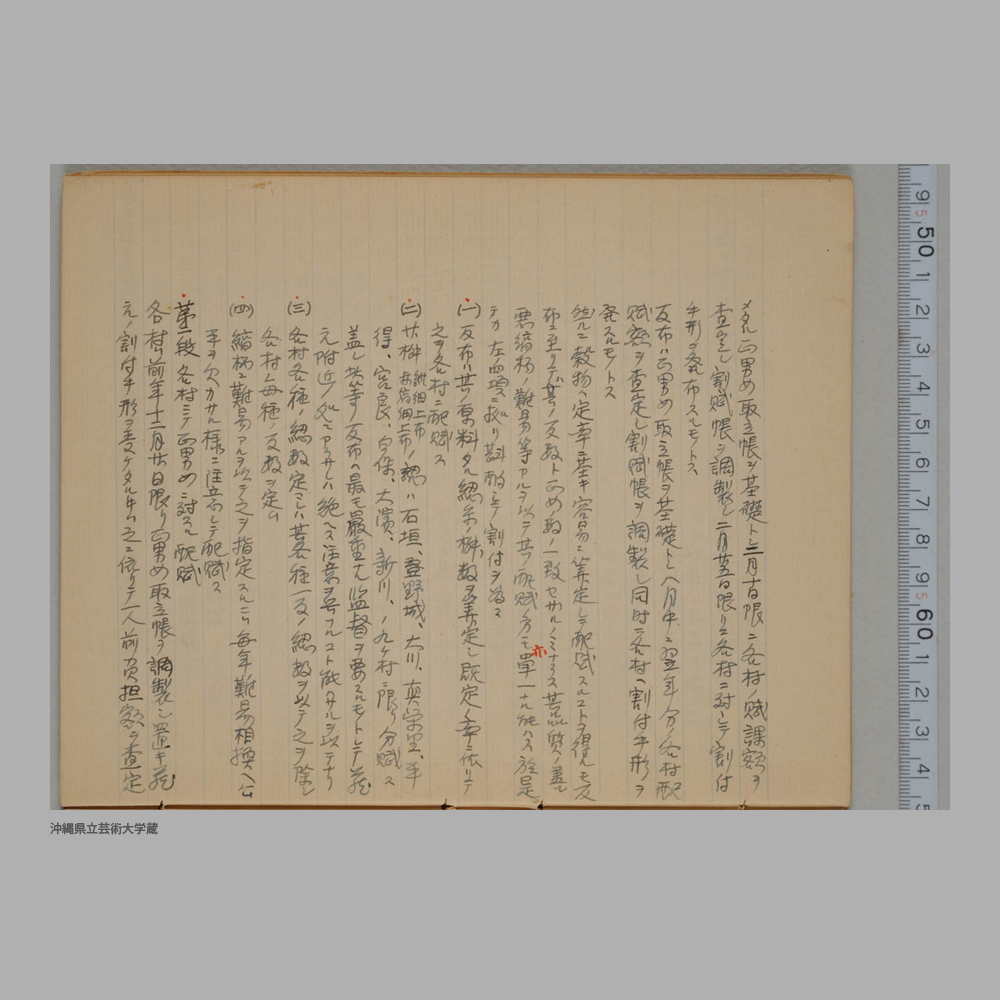 メタル正男女取立帳ヲ基礎トシ三月十日限ニ各村ノ賦課額ヲ
査定シ割賦帳ヲ調製シ二月廿五日限リニ各村ニ対シテ割付
手形ヲ発布スルモトス
反布ハ正男女取立帳ヲ基礎トシ八月中ニ翌年分ノ各村配
賦額ヲ査定シ割賦帳ヲ調製シ同時ニ各村ヘ割付手形ヲ
発スルモトス
然ルニ穀物ハ定率ニ基キ容易ニ算定シテ配賦スルコトヲ得ルモ反
布ニ至リテハ其ノ反数ト正女ノ数ノ一致セサルノミナラス其品質ノ善
悪縞柄ノ難易等アルヲ以テ其ノ配賦ノ方モ亦単一ナル能ハス於是
テカ左四項ニ拠リ斟酌シテ割付ヲ為ス
(一)反布ハ其ノ原料タル綛糸ノ桝数ヲ算定シ既定ノ率ニ依リテ
之ヲ各村ニ配賦ス
(二)廿桝紺細上布赤縞細上布ノ類ハ石垣、登野城、大川、真栄里、平
得、宮良、白保、大濱、新川、ノ九ヶ村ニ限リ分賦ス
蓋シ此等ノ反布ハ最モ厳重ナル監督ヲ要スルモトシテ蔵
元附近ノ処ニアラサレハ絶ヘス注意ヲ与フルコト能ハサルヲ以テナリ
(三)各村各種ノ綛数定マレハ其各種一反ノ綛数ヲ以テ之ヲ除シ
各村ニ毎種ノ反数ヲ定ム
(四)縞柄ニ難易アルヲ以テ之ヲ指定スルニハ毎年難易相換ヘ公
平ヲ欠カサル様ニ注意シテ配賦ス
第二段 各村ニテ正男女ニ対スル配賦
各村ハ前年十二月廿日限リ正男女取立帳ヲ調製シ置キ蔵
元ノ割付手形ヲ受ケタル上ハ之ニ依リテ一人前負担額ヲ査定
9 50 1 2 3 4 5 6 7 8 9 60 1 2 3 4 5
沖縄県立芸術大学蔵